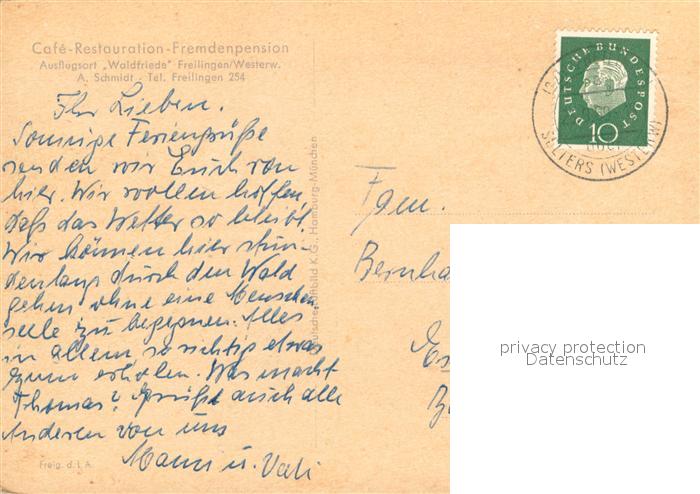 Café-Restauration-Fremdenpension
Ausflugsort „Waldfriede" Freilingen/Westerw.
A. Schmidt - Tel. Freilingen 254
Ihr Lieben.
Sonnige Feriengrüße
senden wir Euch von
hier. Wir wollen hoffen,
daß das Wetter so bleibt.
Wir können hier stun-
denlang durch den Wald
gehen ohne eine Menschen-
seele zu begegnen. Alles
in allem so richtig etwas
zum erholen. Was macht
Thomas? Grüßt auch alle
Anderen von uns
Manni u. Vati
Freig. d. L A.
Luftbild K.G., Hamburg-München
DEUTSCHE BUNDESPOST
10
SELTERS (WESTERW)
Fam.
Bernha
Es
privacy protection
Datenschutz